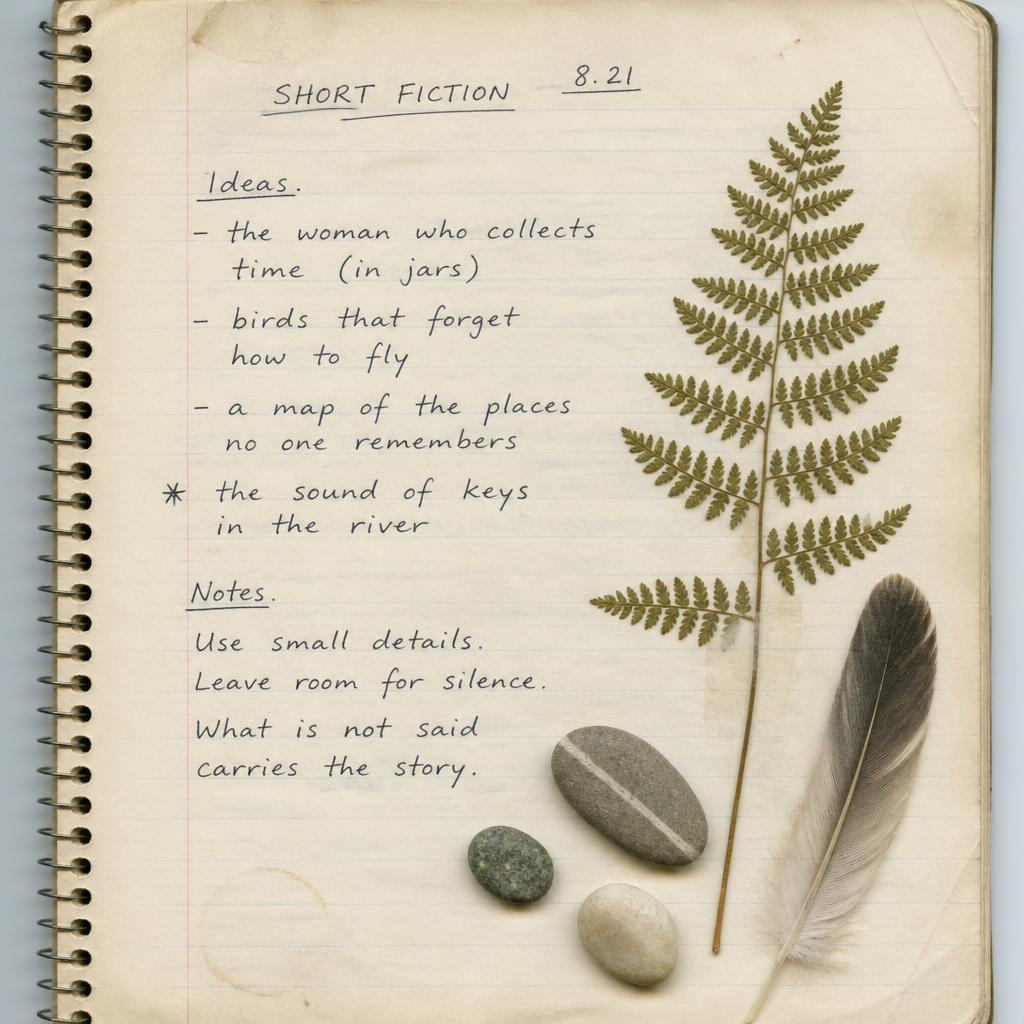 SHORT FICTION 8.21
Ideas.
- the woman who collects
time (in jars)
- birds that forget
how to fly
- a map of the places
no one remembers
* the sound of keys
in the river
Notes.
Use small details.
Leave room for silence.
What is not said
carries the story.